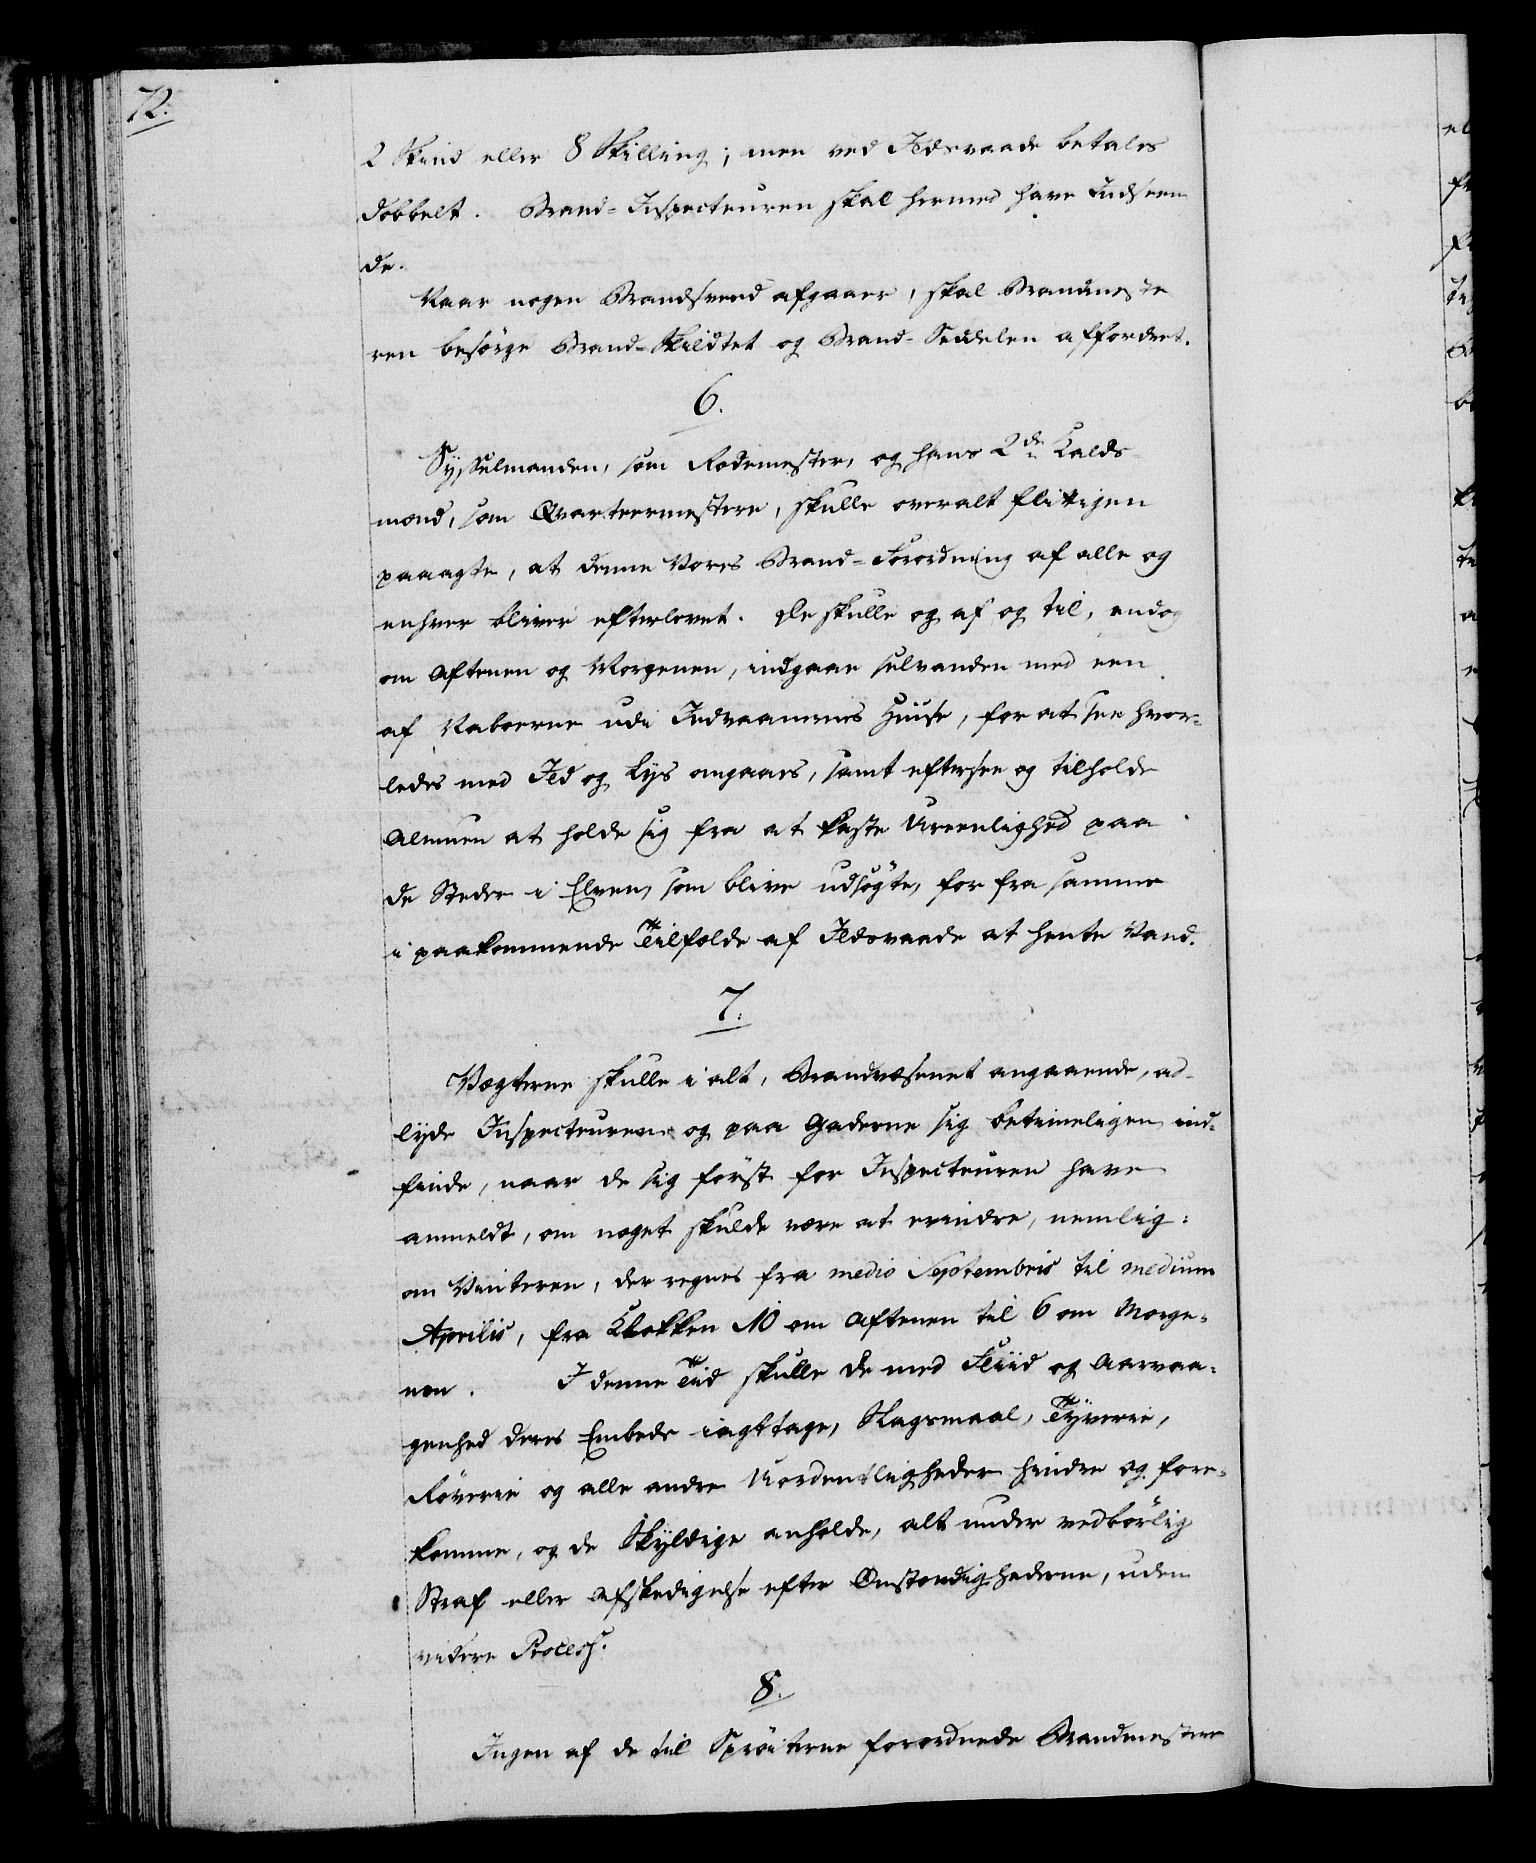 72.
2 Skind eller 8 Skilling; men ved Ildsvaade betales
dobbelt. Brand-Inspecteuren skal hermed have Indseen
de.
Naar nogen Brandsvend afgaaer, skal Brandmeste
ren besørge Brand-Skildtet og Brand-Seddelen affordret.
6.
Sysselmanden, som Rodemester, og hans 2de Kalds-
mænd, som Qvarteermestere, skulle overalt flittigen
paaagte, at denne Vores Brand-Forordning af alle og
enhver bliver efterlevet. De skulle og af og til, endog
om Aftenen og Morgenen, indgaae selvanden med een
af Naboerne udi Indvaanernes Huuse, for at see hvor-
ledes med Ild og Lys omgaaes, samt eftersee og tilholde
Almuen at holde sig fra at kaste Ureenlighed paa
de Steder i Elven, som blive udsøgte, for fra samme
i paakommende Tilfælde af Ildsvaade at hente Vand.
7.
Vægterne skulle i alt, Brandvæsenet angaaende, ad-
lyde Inspecteuren og paa Gaderne sig betimeligen ind-
finde, naar de sig først for Inspecteuren have
anmeldt, om noget skulde være at erindre, nemlig:
om Vinteren, der regnes fra medio Septembris til medium
Aprilis, fra Klokken 10 om Aftenen til 6 om Morge-
nen. I denne Tiid skulle de med Fliid og Aarvaa-
genhed deres Embede iagttage, Slagsmaal, Tyverie,
Røverie og alle andre Uordentligheder hindre og fore-
komme, og de Skyldige anholde, alt under vedbørlig
Straf eller Afskedigelse efter Omstændighederne, uden
videre Process.
8.
Ingen af de til Sprøiterne forordnede Brandmestere